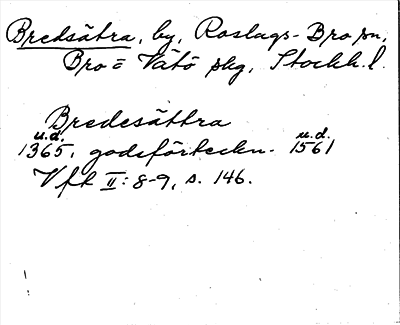 Bredsätra, by, Roslags-Bro sn,
Bro o Vätö skg, Stockh. l.
Bredesättra
u.d. u.d.
1365, godsförteckn. 1561
Vfk II: 8-9, s. 146.